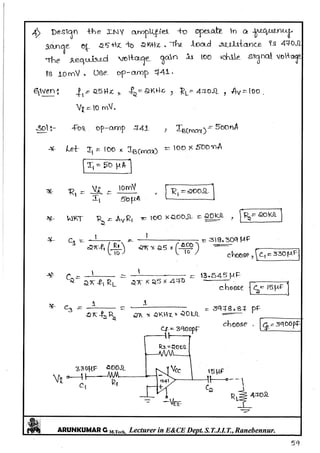 4) Design the INV amplifier to operate in a frequency
range of 25Hz to 2KHz. The load resistance is 470Ω.
The required voltage gain is 100 while signal voltage
is 10mV. Use op-amp 741.
Given: f₁ = 25Hz, f₂ = 2KHz, RL = 470Ω, Av = 100.
Vi = 10 mV.
Sol:- For op-amp 741, IB(max) = 500nA
* Let I₁ = 100 × IB(max) = 100 × 500nA
I₁ = 50 μA
* R₁ = Vi / I₁ = 10mV / 50μA . R₁ = 200Ω.
* WKT R₂ = Av R₁ = 100 × 200Ω = 20KΩ, R₂ = 20KΩ
* C₁ = 1 / 2π f₁ (R₁/10) = 1 / 2π × 25 × (200/10) = 318.309 μF
choose, C₁ = 330μF
* C₂ = 1 / 2π f₁ RL = 1 / 2π × 25 × 470 = 13.545 μF
choose C₂ = 15μF
* C₃ = 1 / 2π f₂ R₂ = 1 / 2π × 2KHz × 20KΩ = 3978.87 pF
choose . C₃ = 3900pF
C₃ = 3900pF
R₂ = 20KΩ
330μF 200Ω VCC 15μF
Vi C₁ R₁ 741 C₂
RL 470Ω
-VEE
ARUNKUMAR G M.Tech, Lecturer in E&CE Dept. S.T.J.I.T., Ranebennur.
59